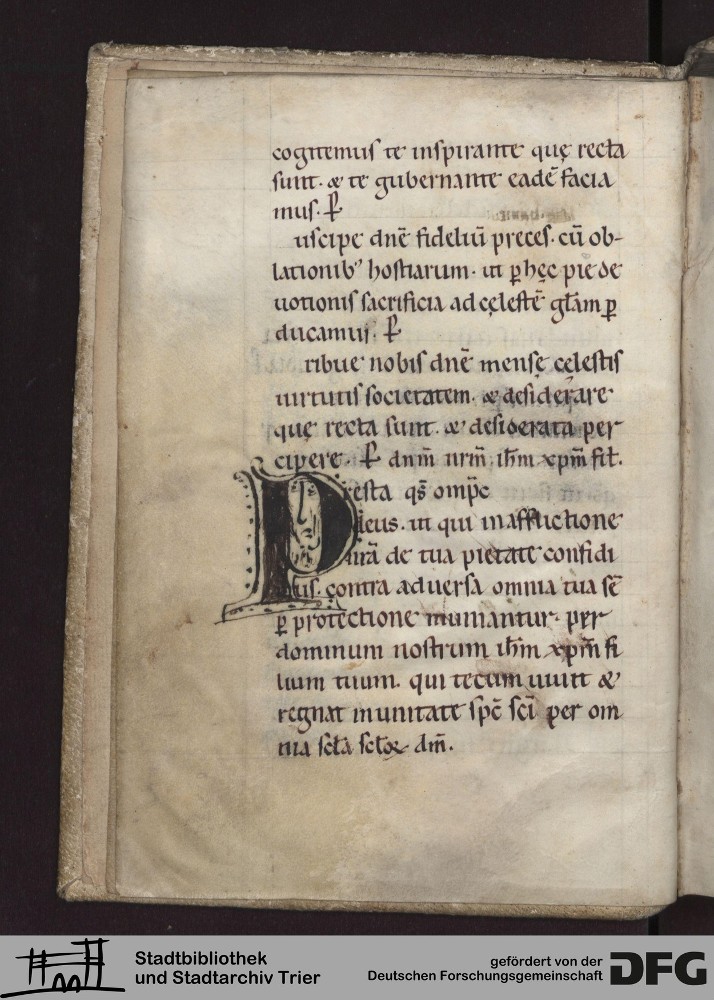 cogitemus te inspirante quę recta
sunt · & te gubernante eadē facia
mus · P̱
uscipe dnē fideliū preces · cū ob-
lationib᾽ hostiarum · ut ꝑ hęc pie de
uotionis sacrificia ad cęlestē gl̄am ꝑ
ducamus · P̱
ribue nobis dnē mensę cęlestis
uirtutis societatem · & desiderare
quę recta sunt · & desiderata per
cipere · P̱ dnm̄ nrm̄ ih̄m xpm̄ fil̄.
Presta qs̄ omp̄c
deus · ut qui in afflictione
nr̄a de tua pietate confidi
mus · contra aduersa omnia tua sē
ꝑ protectione muniantur · per
dominum nostrum ih̄m xpm̄ fi
lium tuum · qui tecum uiuit &
regnat in unitate spc̄ sc̄i per om
nia scl̄a scl̄oꝝ dm̄.
Stadtbibliothek
und Stadtarchiv Trier
gefördert von der
Deutschen Forschungsgemeinschaft
DFG